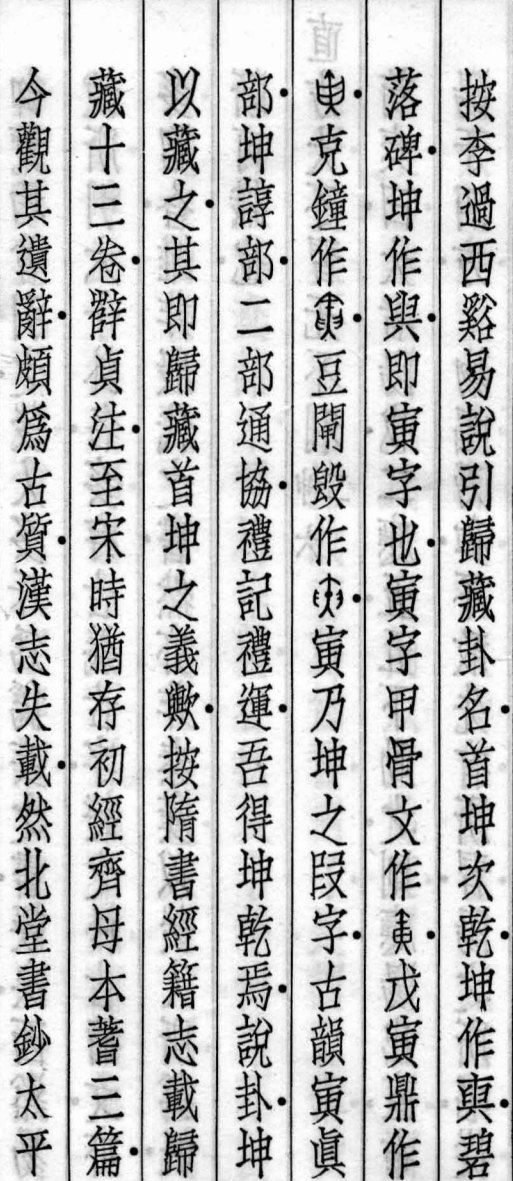 按李過西谿易說引歸藏卦名首坤次乾坤作㚒碧
落碑坤作𠌥即寅字也寅字甲骨文作戊寅鼎作
克鐘作豆閉𣪘作寅乃坤之叚字古韻寅眞
部坤諄部二部通協禮記禮運吾得坤乾焉說卦坤
以藏之其即歸藏首坤之義歟按隋書經籍志載歸
藏十三卷薛貞注至宋時猶存初經齊母本蓍三篇
今觀其遺辭頗爲古質漢志失載然北堂書鈔太平